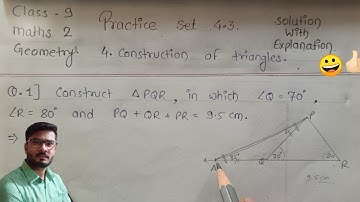 Class - 9
maths 2
Geometry
Practice Set 4.3.
4. Construction of triangles.
Solution
With
Explanation
Q.1] Construct △PQR, in which ∠Q = 70°,
∠R = 80° and PQ + QR + PR = 9.5 cm.
⇒
P
A 35° Q 70° 80° R
9.5 cm